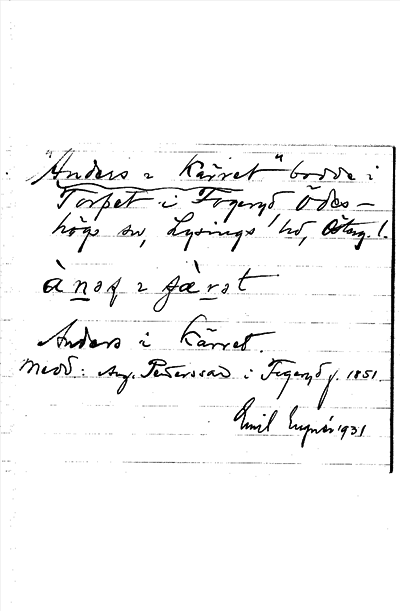 "Anders i Kärret" bodde i
Torpet i Fogeryd, Ödes-
högs sn, Lysings hd, Östg. l.
Anders i Kärret.
Medd. Aug. Petersson i Fogeryd f. 1851
Emil 1931